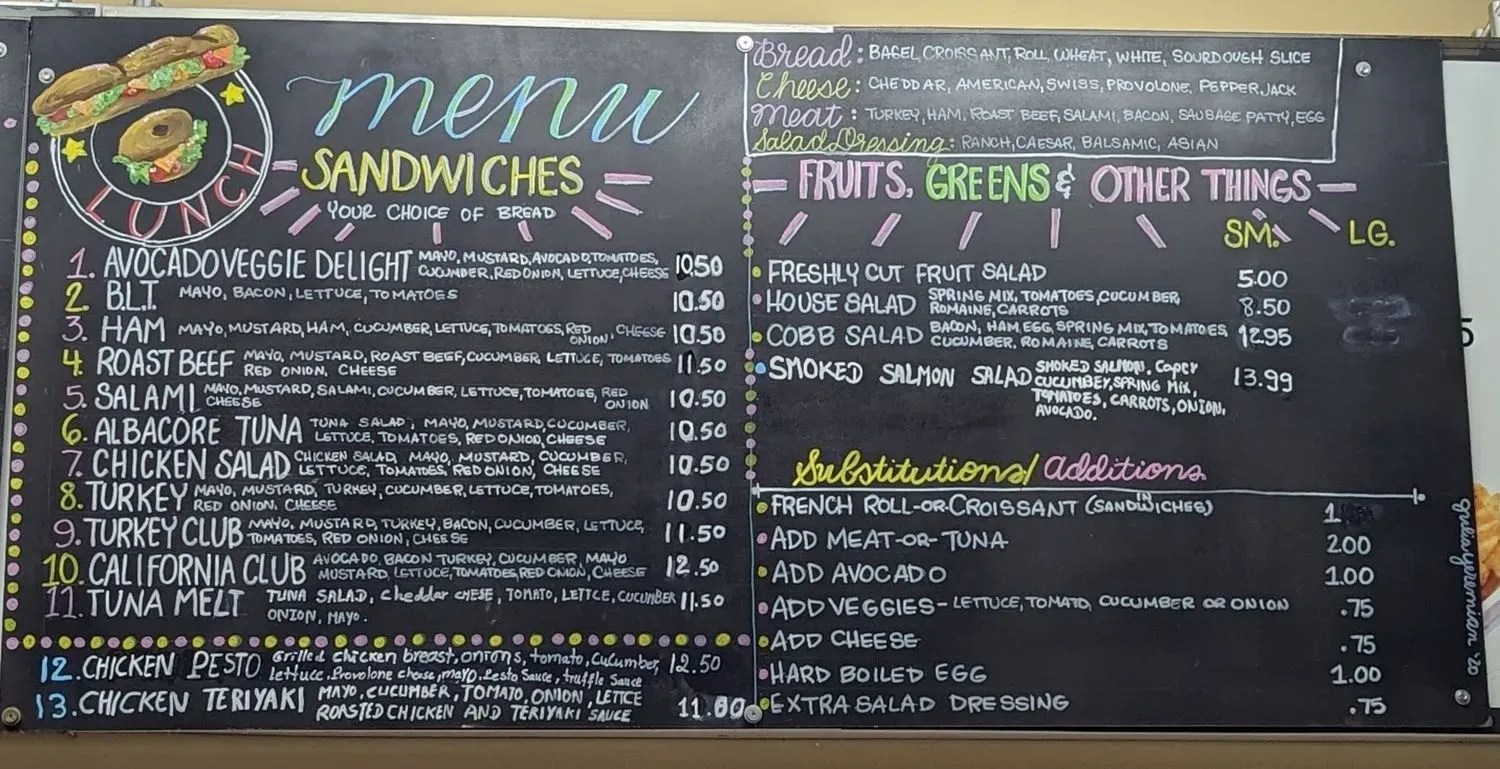 LUNCH
menu
SANDWICHES
YOUR CHOICE OF BREAD
1. AVOCADO VEGGIE DELIGHT MAYO, MUSTARD, AVOCADO, TOMATOES, 10.50
CUCUMBER, RED ONION, LETTUCE, CHEESE
2. B.L.T. MAYO, BACON, LETTUCE, TOMATOES 10.50
3. HAM MAYO, MUSTARD, HAM, CUCUMBER, LETTUCE, TOMATOES, RED ONION, CHEESE 10.50
4. ROAST BEEF MAYO, MUSTARD, ROAST BEEF, CUCUMBER, LETTUCE, TOMATOES 11.50
RED ONION, CHEESE
5. SALAMI MAYO, MUSTARD, SALAMI, CUCUMBER, LETTUCE, TOMATOES, RED ONION 10.50
CHEESE
6. ALBACORE TUNA TUNA SALAD, MAYO, MUSTARD, CUCUMBER, 10.50
LETTUCE, TOMATOES, RED ONION, CHEESE
7. CHICKEN SALAD CHICKEN SALAD, MAYO, MUSTARD, CUCUMBER, 10.50
LETTUCE, TOMATOES, RED ONION, CHEESE
8. TURKEY MAYO, MUSTARD, TURKEY, CUCUMBER, LETTUCE, TOMATOES, 10.50
RED ONION, CHEESE
9. TURKEY CLUB MAYO, MUSTARD, TURKEY, BACON, CUCUMBER, LETTUCE, 11.50
TOMATOES, RED ONION, CHEESE
10. CALIFORNIA CLUB AVOCADO, BACON TURKEY, CUCUMBER, MAYO 12.50
MUSTARD, LETTUCE, TOMATOES, RED ONION, CHEESE
11. TUNA MELT TUNA SALAD, cheddar CHESE, TOMATO, LETTCE, CUCUMBER 11.50
ONION, MAYO.
12. CHICKEN PESTO Grilled chicken breast, onions, tomato, cucumber, 12.50
lettuce. Provolone chease, mayo. Pesto sauce, truffle sauce
13. CHICKEN TERIYAKI MAYO, CUCUMBER, TOMATO, ONION, LETTCE 11.00
ROASTED CHICKEN AND TERIYAKI SAUCE
Bread: BAGEL, CROISSANT, ROLL, WHEAT, WHITE, SOURDOUGH SLICE
Cheese: CHEDDAR, AMERICAN, SWISS, PROVOLONE, PEPPERJACK
Meat: TURKEY, HAM, ROAST BEEF, SALAMI, BACON, SAUSAGE PATTY, EGG
Salad Dressing: RANCH, CAESAR, BALSAMIC, ASIAN
FRUITS, GREENS & OTHER THINGS
SM. LG.
FRESHLY CUT FRUIT SALAD 5.00
HOUSE SALAD SPRING MIX, TOMATOES, CUCUMBER, 8.50
ROMAINE, CARROTS
COBB SALAD BACON, HAM, EGG, SPRING MIX, TOMATOES 12.95
CUCUMBER, ROMAINE, CARROTS
SMOKED SALMON SALAD SMOKED SALMON, Caper 13.99
CUCUMBEY, SPRING MIX,
TOMATOES, CARROTS, ONION,
AVOCADO.
Substitutions/additions
FRENCH ROLL-OR-CROISSANT (IN SANDWICHES) 1
ADD MEAT-OR-TUNA 2.00
ADD AVOCADO 1.00
ADD VEGGIES- LETTUCE, TOMATO, CUCUMBER OR ONION .75
ADD CHEESE .75
HARD BOILED EGG 1.00
EXTRA SALAD DRESSING .75
juliayeremian '20
5